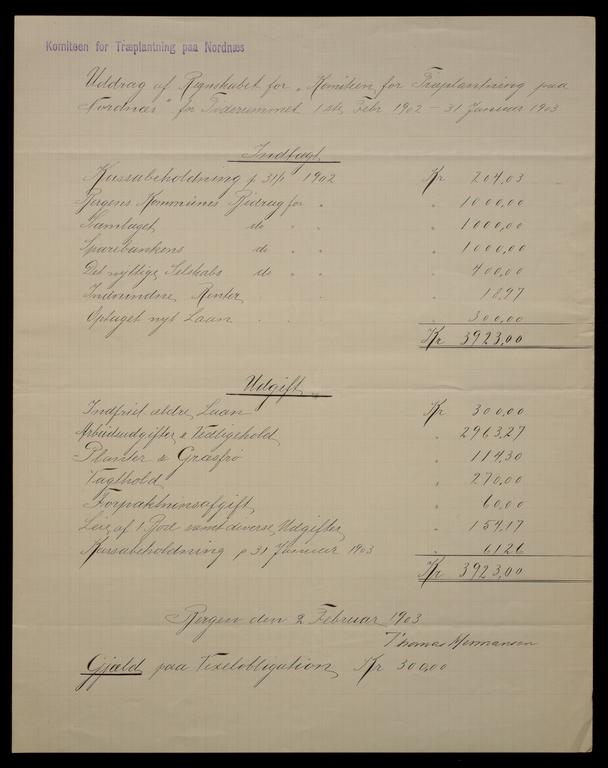 Komiteen for Træplantning paa Nordnæs
Uddrag af Regnskabet for "Komiteen for Træplantning paa
Nordnæs" for Tidsrummet 1ste Febr 1902 - 31 Januar 1903
Indtægt
Kassabeholdning p 31/1 1902 Kr 204,03
Bergens Kommunes Bidrag for " " 1000,00
Samlaget do " " " 1000,00
Sparebankens do " " " 1000,00
Det nyttige Selskabs do " " " 400,00
Indvundne Renter " " " 18,97
Optaget nyt Laan " " 300,00
Kr 3923,00
Udgift
Indfriet ældre Laan Kr 300,00
Arbeidsudgifter & Vedligehold " 2963,27
Planter & Græsfrø " 114,30
Vagthold " 270,00
Forpaktningsafgift " 60,00
Leie af 1 Bod samt diverse Udgifter " 154,17
Kassabeholdning p 31 Januar 1903 " 61,26
Kr 3923,00
Bergen den 2 Februar 1903
Thomas Hermansen
Gjæld paa Vexelobligation Kr 300,00